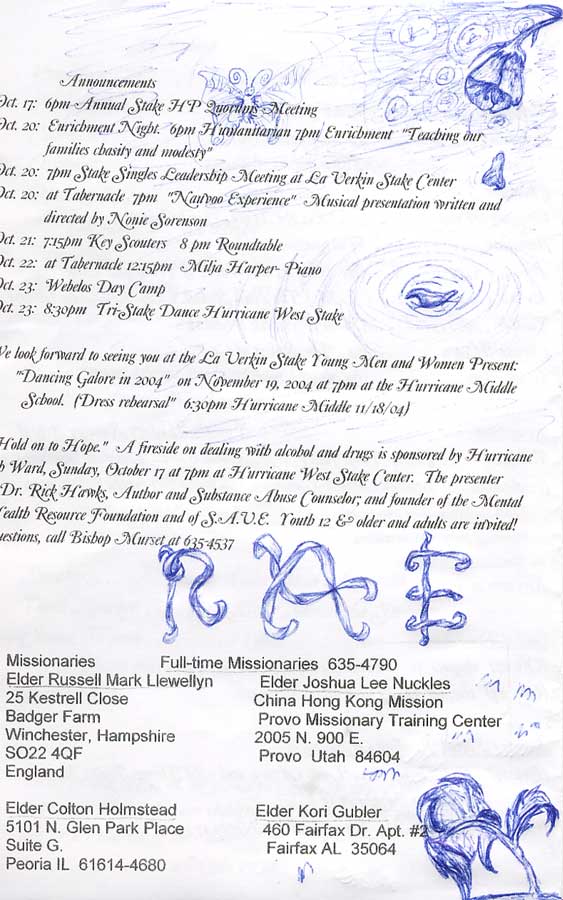 Announcements
Oct. 17: 6pm Annual Stake HP Quorums Meeting
Oct. 20: Enrichment Night. 6pm Humanitarian 7pm Enrichment "Teaching our
families chasity and modesty"
Oct. 20: 7pm Stake Singles Leadership Meeting at La Verkin Stake Center
Oct. 20: at Tabernacle 7pm "Nauvoo Experience" Musical presentation written and
directed by Nonie Sorenson
Oct. 21: 7:15pm Key Scouters 8 pm Roundtable
Oct. 22: at Tabernacle 12:15pm Milja Harper- Piano
Oct. 23: Webelos Day Camp
Oct. 23: 8:30pm Tri-Stake Dance Hurricane West Stake
We look forward to seeing you at the La Verkin Stake Young Men and Women Present:
"Dancing Galore in 2004" on November 19, 2004 at 7pm at the Hurricane Middle
School. (Dress rehearsal" 6:30pm Hurricane Middle 11/18/04)
Hold on to Hope." A fireside on dealing with alcohol and drugs is sponsored by Hurricane
h Ward, Sunday, October 17 at 7pm at Hurricane West Stake Center. The presenter
Dr. Rick Hawks, Author and Substance Abuse Counselor; and founder of the Mental
ealth Resource Foundation and of S.A.V.E. Youth 12 & older and adults are invited!
uestions, call Bishop Murset at 635-4537
RAE
Missionaries
Full-time Missionaries 635-4790
Elder Russell Mark Llewellyn
25 Kestrell Close
Badger Farm
Winchester, Hampshire
SO22 4QF
England
Elder Joshua Lee Nuckles
China Hong Kong Mission
Provo Missionary Training Center
2005 N. 900 E.
Provo Utah 84604
Elder Colton Holmstead
5101 N. Glen Park Place
Suite G.
Peoria IL 61614-4680
Elder Kori Gubler
460 Fairfax Dr. Apt. #2
Fairfax AL 35064